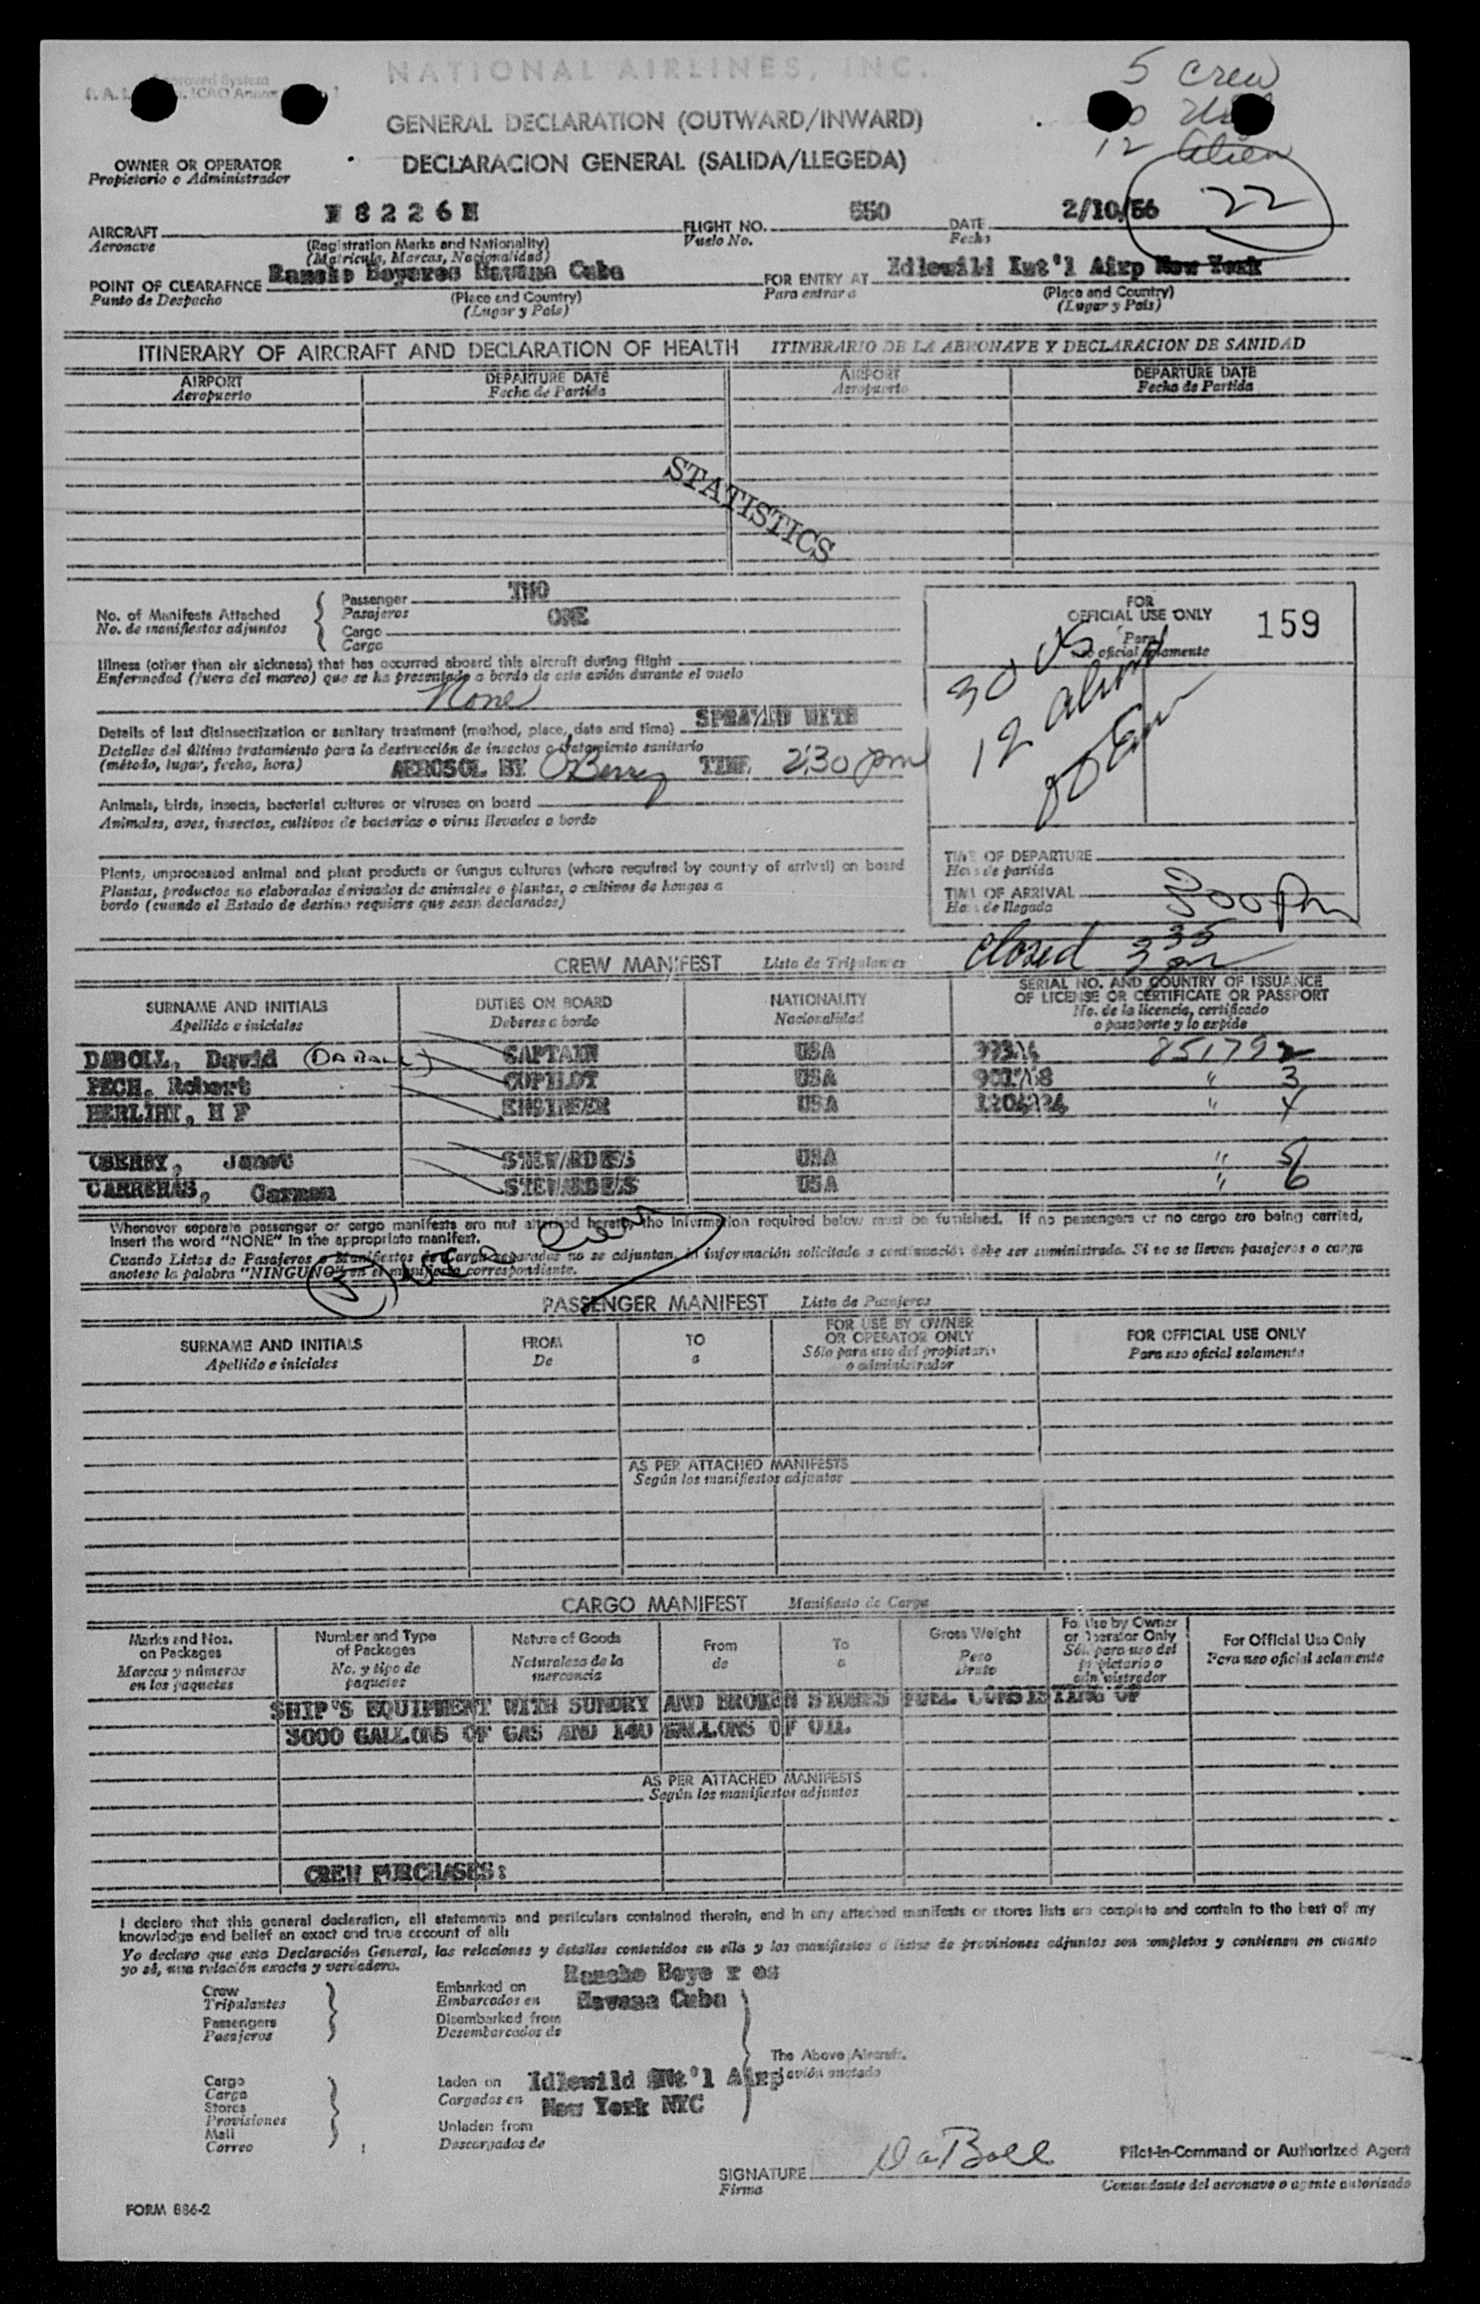 NATIONAL AIRLINES, INC.
5 Crew
12 Alien
22
GENERAL DECLARATION (OUTWARD/INWARD)
DECLARACION GENERAL (SALIDA/LLEGEDA)
OWNER OR OPERATOR
Propietario o Administrador
AIRCRAFT N8226H FLIGHT NO. 550 DATE 2/10/56
Aeronave (Registration Marks and Nationality) Vuelo No. Fecha
(Matricula, Marcas, Nacionalidad)
POINT OF CLEARAFNCE Rancho Boyeros Havana Cuba FOR ENTRY AT Idlewild Int'l Airp New York
Punto de Despacho (Place and Country) Para entrar a (Place and Country)
(Lugar y Pais) (Lugar y Pais)
ITINERARY OF AIRCRAFT AND DECLARATION OF HEALTH ITINERARIO DE LA AERONAVE Y DECLARACION DE SANIDAD
AIRPORT DEPARTURE DATE AIRPORT DEPARTURE DATE
Aeropuerto Fecha de Partida Aeropuerto Fecha de Partida
STATISTICS
No. of Manifests Attached Passenger TWO
No. de manifiestos adjuntos Pasajeros
Cargo ONE
Carga
FOR
OFFICIAL USE ONLY 159
Para
uso oficial solamente
30 US
12 alien
Illness (other than air sickness) that has occurred aboard this aircraft during flight
Enfermedad (fuera del mareo) que se ha presentado a bordo de este avión durante el vuelo
None
Details of last disinsectization or sanitary treatment (method, place, date and time) SPRAYED WITH
Detalles del último tratamiento para la destrucción de insectos o tratamiento sanitario
(método, lugar, fecha, hora) AEROSOL BY OBerry TIME 2:30 pm
Animals, birds, insects, bacterial cultures or viruses on board
Animales, aves, insectos, cultivos de bacterias o virus llevados a bordo
Plants, unprocessed animal and plant products or fungus cultures (where required by country of arrival) on board
Plantas, productos no elaborados derivados de animales o plantas, o cultivos de hongos a
bordo (cuando el Estado de destino requiere que sean declarados)
TIME OF DEPARTURE
Hora de partida
TIME OF ARRIVAL 300 Pm
Hora de llegada
Closed 3 35 pm
CREW MANIFEST Lista de Tripulantes
SURNAME AND INITIALS DUTIES ON BOARD NATIONALITY SERIAL NO. AND COUNTRY OF ISSUANCE
OF LICENSE OR CERTIFICATE OR PASSPORT
Apellido e iniciales Deberes a bordo Nacionalidad No. de la licencia, certificado
o pasaporte y lo expide
DABOLL, David (DABALL) CAPTAIN USA 851792
PECH, Robert COPILOT USA " 3
HERLIHY, H F ENGINEER USA " 4
OBERRY, Janet STEWARDESS USA " 5
CARRERAS, Carmen STEWARDESS USA " 6
Whenever separate passenger or cargo manifests are not attached hereto, the information required below must be furnished. If no passengers or no cargo are being carried,
insert the word "NONE" in the appropriate manifest.
Cuando Listas de Pasajeros o Manifiestos de Carga separados no se adjuntan, la información solicitada a continuación debe ser suministrada. Si no se lleven pasajeros o carga
anotese la palabra "NINGUNO" en el manifiesto correspondiente.
PASSENGER MANIFEST Lista de Pasajeros
SURNAME AND INITIALS FROM TO FOR USE BY OWNER
OR OPERATOR ONLY FOR OFFICIAL USE ONLY
Apellido e iniciales De a Sólo para uso del propietario
o administrador Para uso oficial solamente
AS PER ATTACHED MANIFESTS
Según los manifiestos adjuntos
CARGO MANIFEST Manifiesto de Carga
Marks and Nos.
on Packages
Marcas y números
en los paquetes
Number and Type
of Packages
No. y tipo de
paquetes
Nature of Goods
Naturaleza de la
mercancia
From
de
To
a
Gross Weight
Peso
Bruto
For Use by Owner
or Operator Only
Sólo para uso del
propietario o
administrador
For Official Use Only
Para uso oficial solamente
SHIP'S EQUIPMENT WITH SUNDRY AND BROKEN STORES FUEL CONSISTING OF
3000 GALLONS OF GAS AND 140 GALLONS OF OIL
AS PER ATTACHED MANIFESTS
Según los manifiestos adjuntos
CREW PURCHASES:
I declare that this general declaration, all statements and particulars contained therein, and in any attached manifests or stores lists are complete and contain to the best of my
knowledge and belief an exact and true account of all:
Yo declaro que esta Declaración General, las relaciones y detalles contenidos en ella y los manifiestos o listas de provisiones adjuntos son completos y contienen en cuanto
yo sé, una relación exacta y verdadera.
Crew
Tripulantes
Passengers
Pasajeros
Embarked on Rancho Boye r os
Embarcados en Havana Cuba
Disembarked from
Desembarcados de
The Above Aircraft.
avión anotado
Cargo
Carga
Stores
Provisiones
Mail
Correo
Laden on Idlewild Int'l Airp
Cargados en New York NYC
Unladen from
Descargados de
SIGNATURE DaBoll Pilot-in-Command or Authorized Agent
Firma Comandante del aeronave o agente autorizado
FORM 886-2